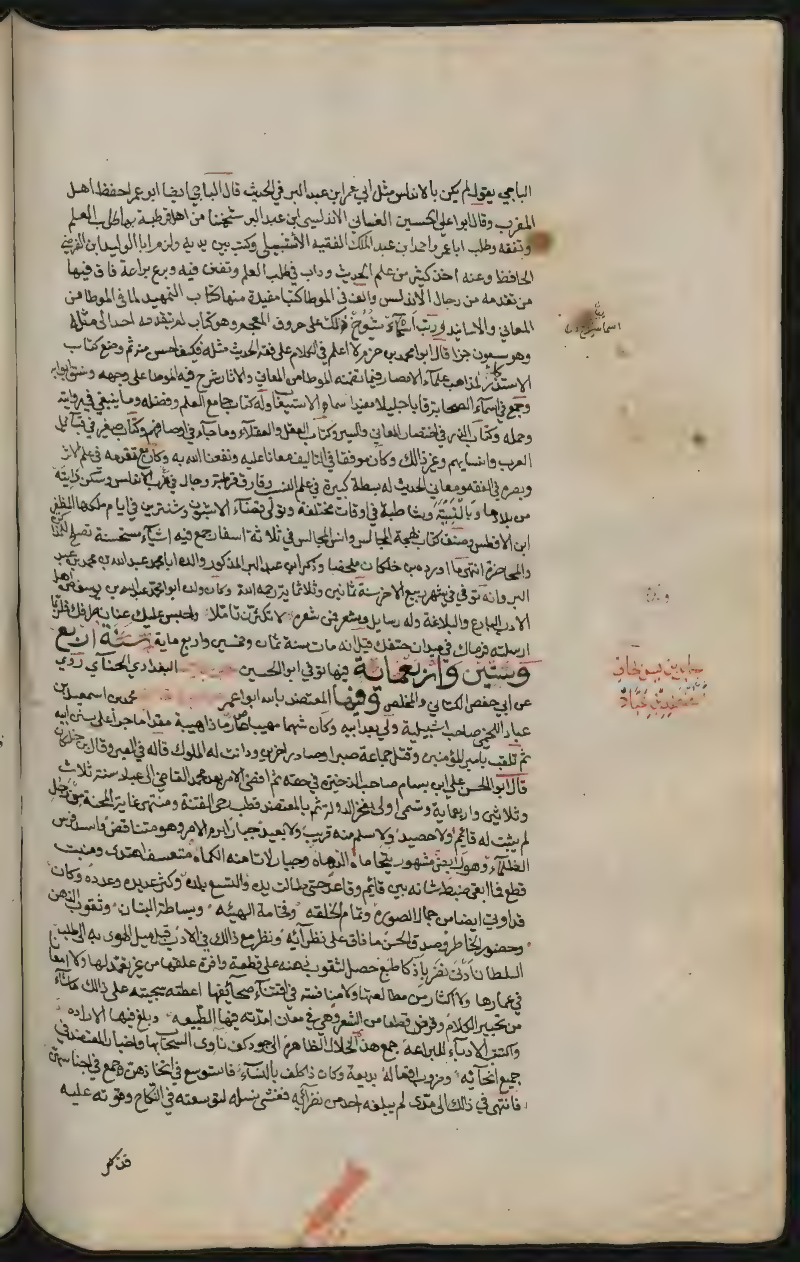 الباجي يقول لم يكن بالاندلس مثل ابي عمر ابن عبد البر في الحديث قال الباجي ايضا ابو عمر احفظ اهل
المغرب وقال ابو علي الحسين الغساني الاندلسي ابن عبد البر شيخنا من اهل قرطبة بها طلب العلم
وتفقه ولزم ابا عمر واحد ابن عبد الملك الفقيه الاشبيلي وكتب بين يديه ولزم ابا الوليد ابن الفرضي
الحافظ وعنه اخذ كثير من علم الحديث وداب في طلب العلم وتفنن فيه وبرع براعة فاق فيها
من تقدمه من رجال الاندلس والف في الموطا كتبا مفيدة منها كتاب التمهيد لما في الموطا من
المعاني والاسانيد ورتب اسماء شيوخ مالك على حروف المعجم وهو كتاب لم يتقدمه احد الى مثله
وهو سبعون جزا قال ابو محمد بن حزم لا اعلم في الكلام على فقه الحديث مثله فكيف احسن منه ثم وضع كتاب
الاستذكار لمذاهب علماء الامصار فيما تضمنه الموطا من المعاني والاثار شرح فيه الموطا على وجهه ونسق ابوابه
وجمع في اسماء الصحابة كتابا جليلا مفيدا سماه الاستيعاب وله كتاب جامع العلم وفضله وما ينبغي في روايته
وحمله وكتاب الدرر في اختصار المغازي والسير وكتاب العقل والعقلاء وما جاء في اوصافهم وكتاب صغير في قبائل
العرب وانسابهم وغير ذالك وكان موفقا في التاليف معانا عليه ونفعنا الله به وكان مع تقدمه في علم الاثر
وبصره في الفقه ومعاني الحديث له بسطة كبيرة في علم النسب وفارق قرطبة وجال في غرب الاندلس وسكن دانية
من بلادها وبلنسية وشاطبة في اوقات مختلفة وتولى قضاء الاشبونة وشنترين في ايام ملكها المظفر
ابن الافطس وصنف كتاب بهجة المجالس وانس المجالس في ثلاثة اسفار جمع فيه اشياء مستحسنة تصلح للمذاكرة
والمحاضرة انتهى ما اورده بن خلكان ملخصا وذكر ابن عبد البر المذكور والده ابا محمد عبد الله بن محمد بن عبد
البر وانه توفي في شهر ربيع الاخر سنة ثمانين وثلاثمائة رحمه الله وكان ولده ابو محمد عبد الله بن يوسف من اهل
الادب البارع والبلاغة وله رسايل وشعر فمن شعره لا تكثرن تاملا واحبس عليك عنان طرفك فلربما
ارسلته فرماك في ميدان حتفك قيل انه مات سنة ثمان وخمسين واربع ماية سنة اربع
وستين واربعماية فيها توفي ابو الحسين البغدادي الحنائي روى
عن ابي حفص الكتاني والمخلص وفيها المعتضد بالله ابو عمر محمد بن اسمعيل بن
عباد اللخمي صاحب اشبيلية ولي بعد ابيه وكان شهما مهيبا صارما ذا هيبة مقداما جرا على سنن ابيه
ثم تلقب بامير المؤمنين وقتل جماعة صبرا وصادر اخرين ودانت له الملوك قاله في العبر وقال بن خلكان
قال ابو الحسن علي ابن بسام صاحب الذخيرة في حقه ثم افضى الامر بعد محمد القاضي الى عباد سنة ثلاث
وثلاثين واربعماية وتسمى اولا بفخر الدولة ثم بالمعتضد قطب رحى الفتنة ومنتهى غاية المحنة من رجل
لم يثبت له قائم ولا حصيد ولا سلم منه قريب ولا بعيد جبار ابرم الامر وهو متناقض واسد فرس
الطلاء وهو رابض مشهور يتحاماه الدهاة وجبار لا تامنه الكماة متعسف اهتدى ومنبت
قطع فما ابقى ضبط شانه بين قائم وقاعد حتى طالت يده واتسع بلده وكثر عديده وعدده وكان
قد اوتي ايضا من جمال الصورة وتمام الخلقة وفخامة الهيئه وبساطة البنان وثقوب الذهن
وحضور الخاطر وصدق الحس ما فاق على نظرائه ونظر مع ذالك في الادب قبل ميل الهوى به الى طلب
السلطان ادنى نظر باذكا طبع حصل لثقوب ذهنه على قطعة وافرة علقها من غير تعهد لها ولا امعان
في غمارها ولا اكثار من مطالعتها ولا منافسة في اقتناء صحائفها اعطته سجيته على ذالك ما شاء
من تحبير الكلام وقرض قطعا من الشعر وهي في معان امدته فيها الطبيعه وبلغ فيها الاراده
واكتتبها الادباء للبراعة جمع هذه الخلال الظاهرة الى جود كف ناوى السحاب بها واخبار المعتضد في
جميع انحائه وضروب افعاله بديعة وكان ذا كلف بالنساء فاستوسع في اتخاذهن وجمع في اجناسهن
فانتهى في ذالك الى مدى لم يبلغه احد من نظرائه ففشى نسله لتوسعته في النكاح وقوته عليه